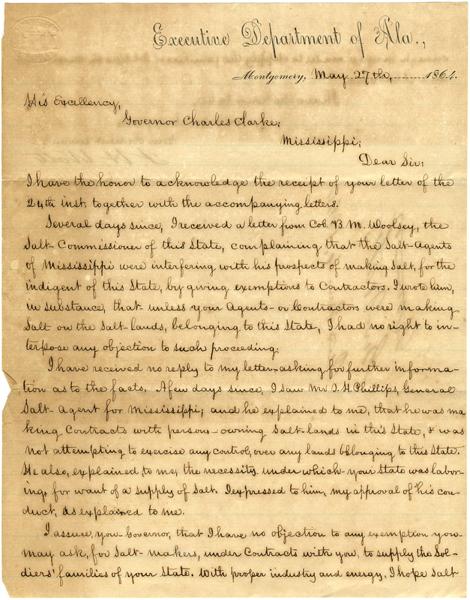 Executive Department of Ala.,
Montgomery, May 27th, 1864.
His Excellency,
Governor Charles Clarke;
Mississippi;
Dear Sir;
I have the honor to acknowledge the receipt of your letter of the
24th inst. together with the accompanying letters.
Several days since, I received a letter from Col. B. M. Woolsey, the
Salt-Commissioner of this State, complaining that the Salt-Agents
of Mississippi were interfering with his prospects of making Salt, for the
indigent of this State, by giving exemptions to Contractors. I wrote him,
in substance, that unless your Agents or Contractors were making
Salt on the Salt-lands, belonging to this State, I had no right to in-
terpose any objection to such proceeding.
I have received no reply to my letter asking for further informa-
tion as to the facts. A few days since, I saw Mr. J. H. Phillips, General
Salt-Agent for Mississippi; and he explained to me, that he was ma-
king Contracts with persons owning Salt-lands in this State, & was
not attempting to exercise any control, over any lands belonging to this State.
He also, explained to me, the necessity under which your State was labor-
ing, for want of a supply of Salt. I expressed to him, my approval of his con-
duct, as explained to me.
I assure, you Governor, that I have no objection to any exemption you
may ask, for Salt-makers, under Contracts with you, to supply the Sol-
diers' families of your State. With proper industry and energy, I hope Salt